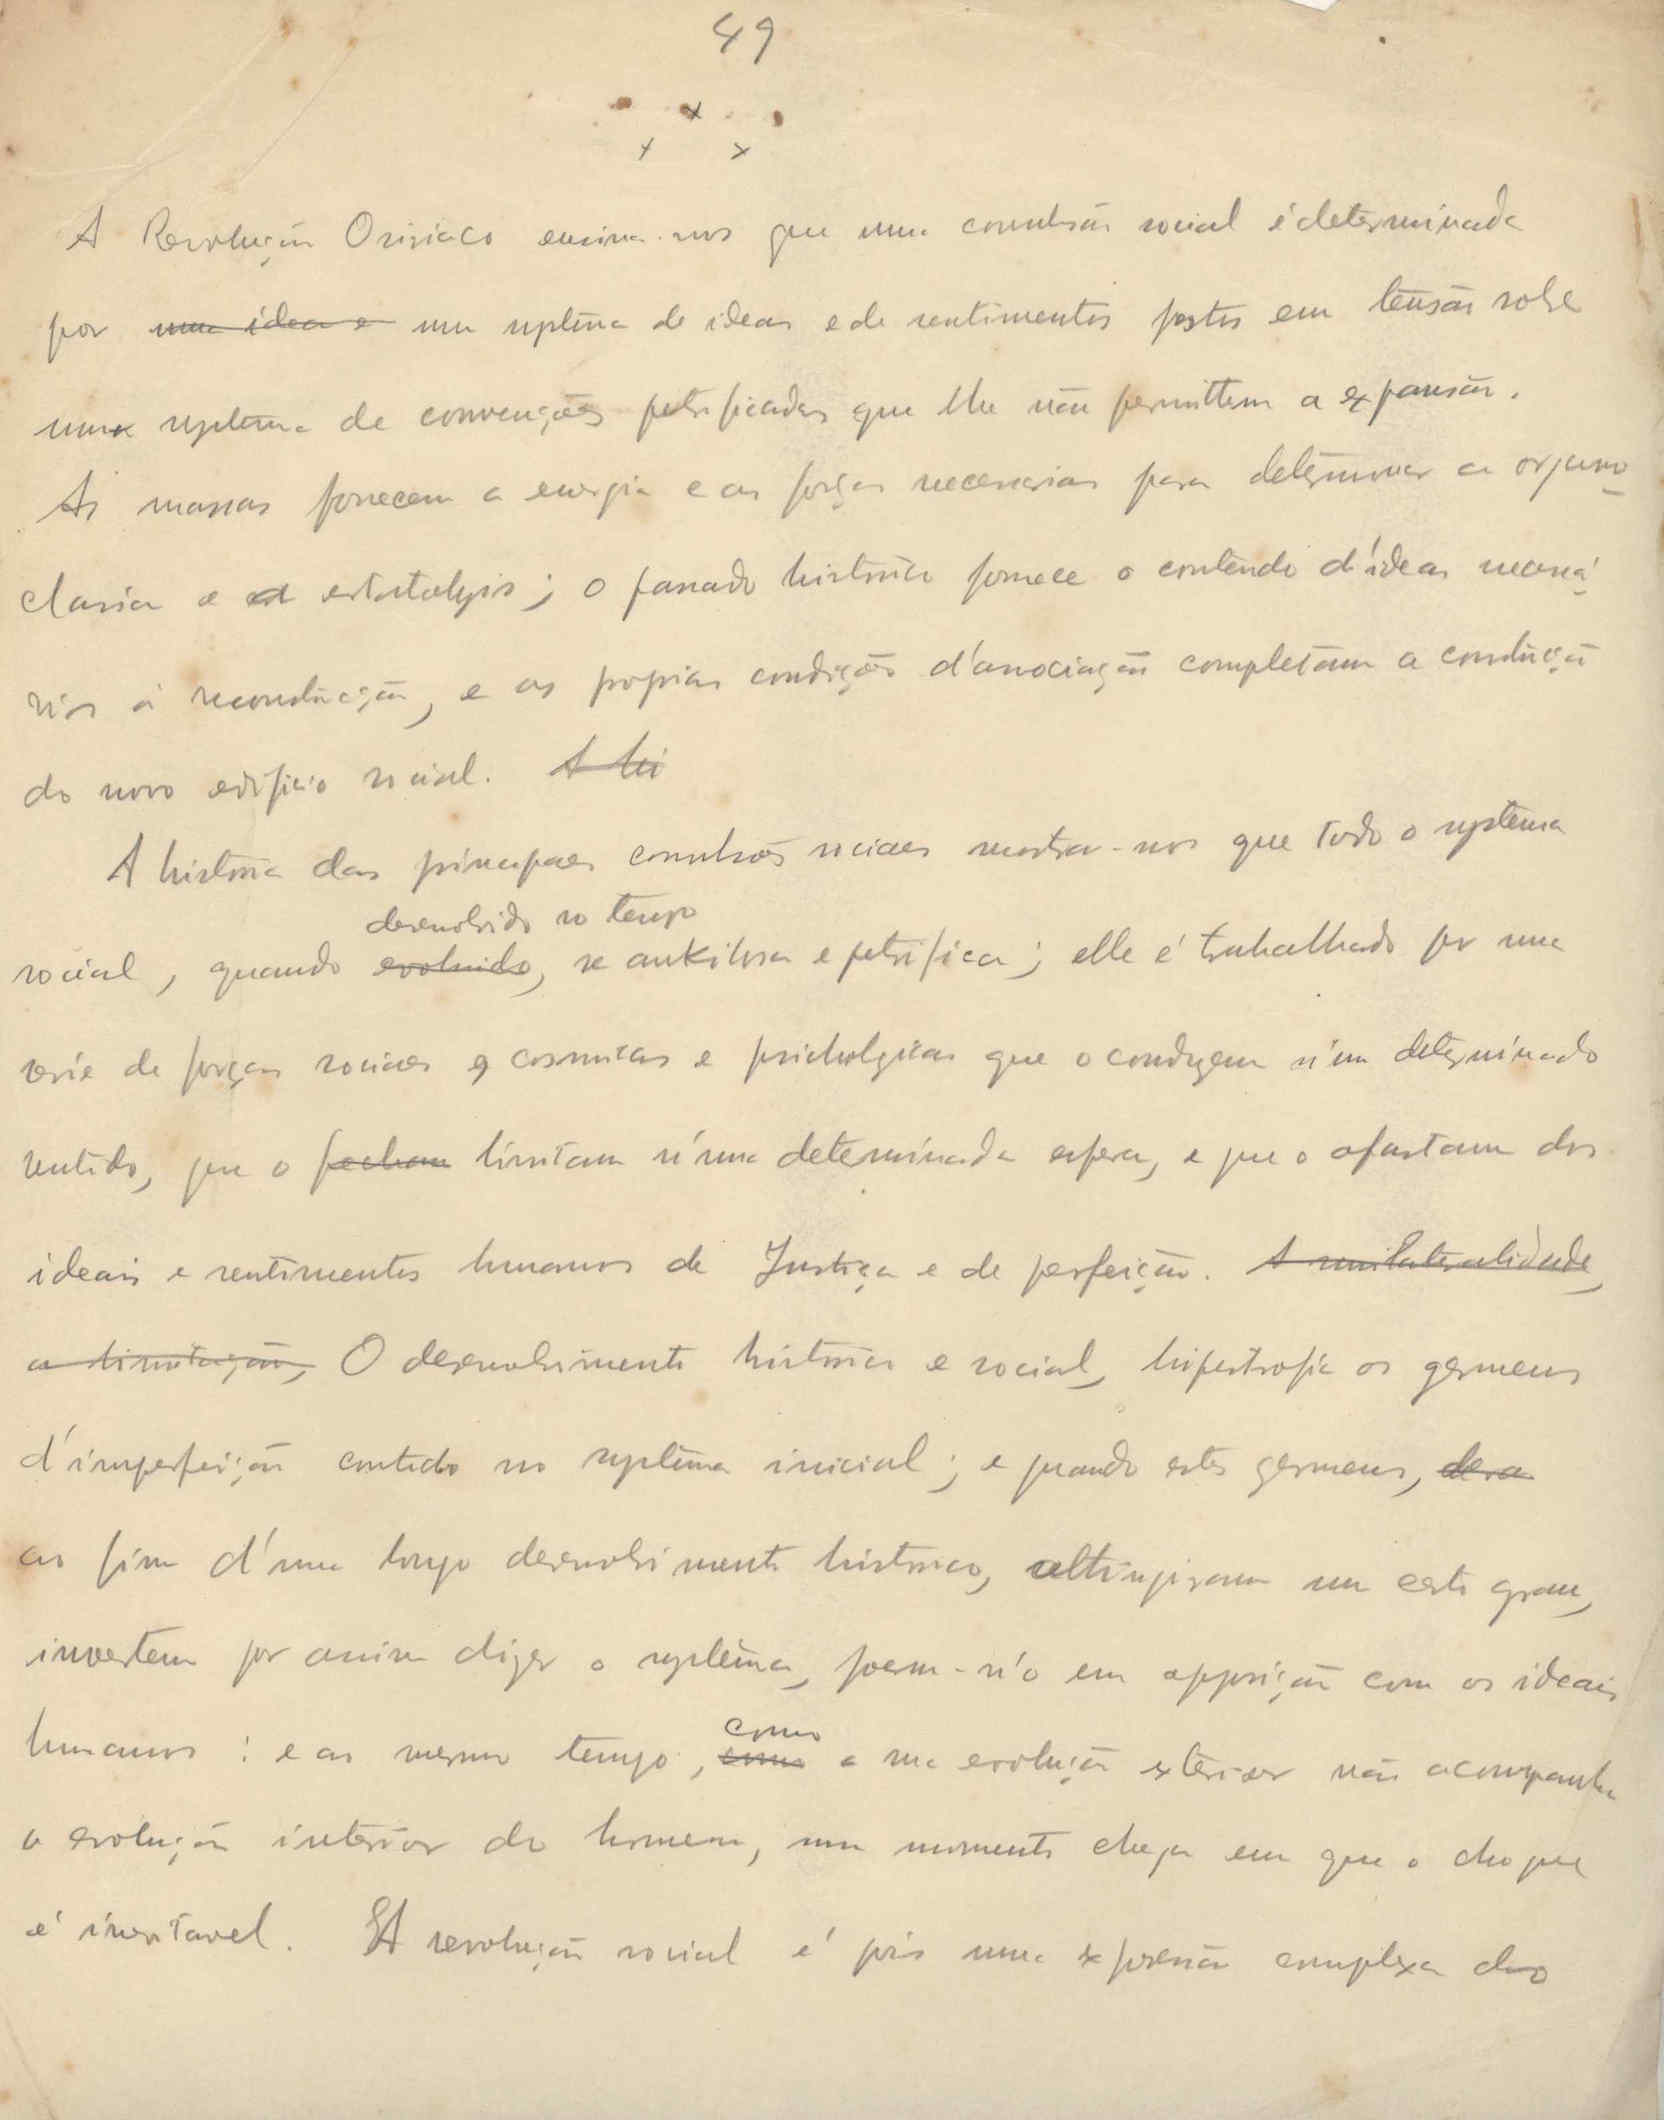 49
x
x x
A Revolução Osiriaca ensina-nos que uma convulsão social é determinada
por uma idea e um systema de ideas e de sentimentos postos em tensão sobre
um systema de convenções petrificadas que lhe não permittem a expansão.
As massas fornecem a energia e as forças necessarias para determinar a
clasia e a ; o passado historico fornece o contendo d'ideas necessá
rias á reconstrucção, e as proprias condições d'associação completam a construcção
do novo edificio social. A lei
A historia das principaes convulsões sociaes mostra-nos que todo o systema
desenvolvido no tempo
social, quando evoluido, se ankilosa e petrifica; elle é trabalhado por uma
serie de forças sociaes e cosmicas e psichologicas que o conduzem n'um determinado
sentido, que o fecham limitam n'uma determinada esfera, e que o afastam dos
ideais e sentimentos humanos de Justiça e de perfeição. A unilateralidade,
a limitação, O desenvolvimento historico e social, hipertrofia os germens
d'imperfeição contidos no systema inicial; e quando estes germens,
ao fim d'um longo desenvolvimento historico, attingiram um certo grau,
invertem por assim dizer o systema, poem-n'o em opposição com os ideais
humanos : e ao mesmo tempo, como
como a sua evolução exterior não acompanha
a evolução interior do homem, um momento chega em que o choque
é inevitavel. A revolução social é pois uma expressão complexa do